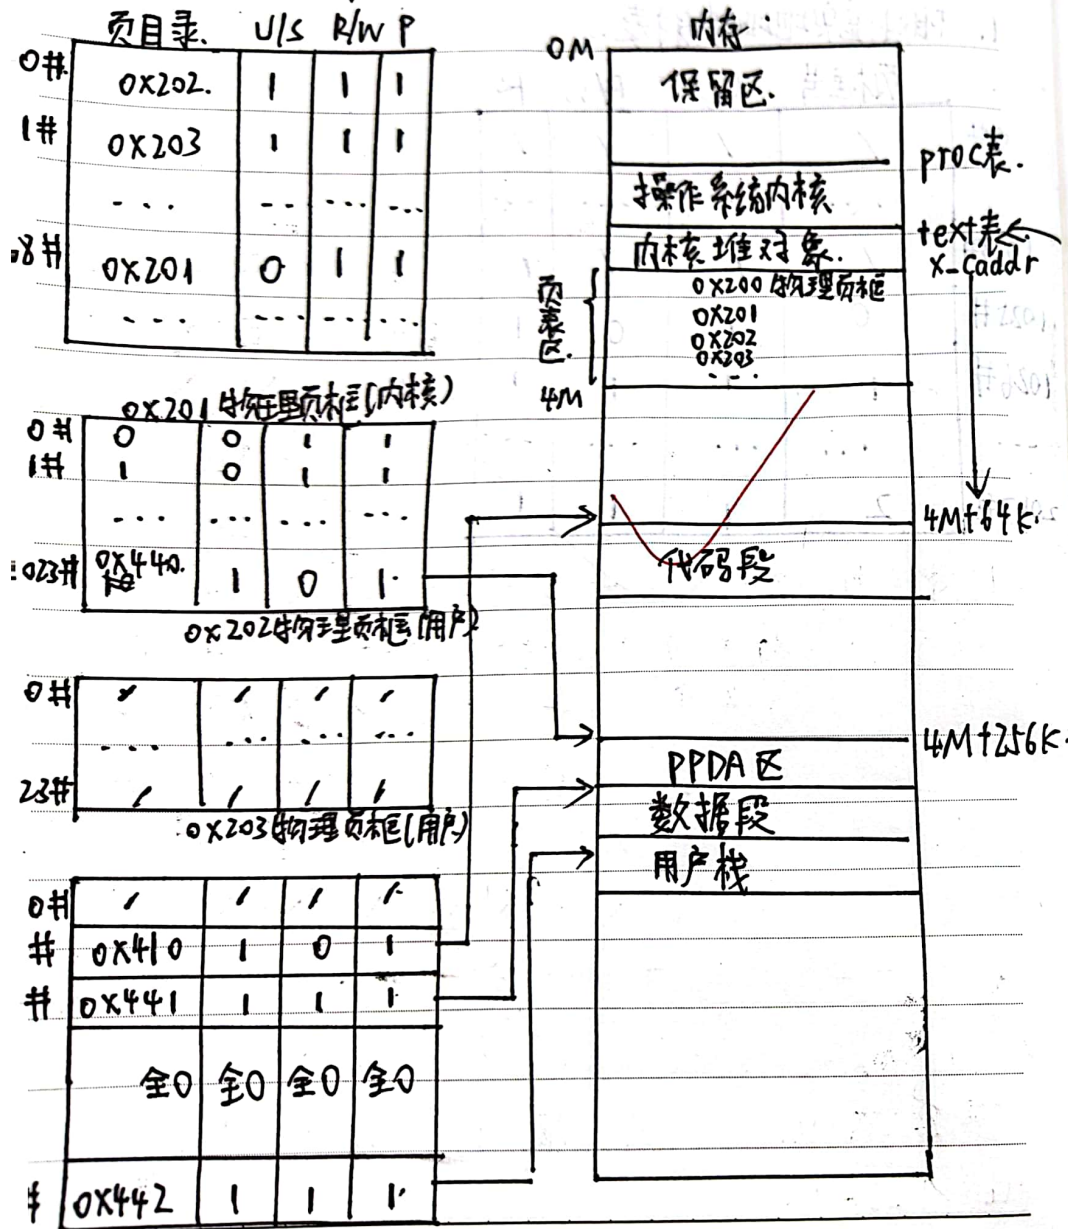 页目录. U/S R/W P
0# 0x202. 1 1 1
1# 0x203 1 1 1
... ... ... ...
8# 0x201 0 1 1
... ... ... ...
0x201物理页框(内核)
0# 0 0 1 1
1# 1 0 1 1
... ... ... ...
023# 0x440. 1 0 1
0x202物理页框(用户)
0# / / / /
... ... ... ...
23# / / / /
0x203物理页框(用户)
0# / / / /
# 0x410 1 0 1
# 0x441 1 1 1
全0 全0 全0 全0
# 0x442 1 1 1
内存
0M
保留区.
proc表.
操作系统内核
text表
x-caddr
内核堆对象.
页表区.
0x200物理页框
0x201
0x202
0x203
...
4M
... ...
4M+64K.
代码段
4M+256K.
PPDA区
数据段
用户栈